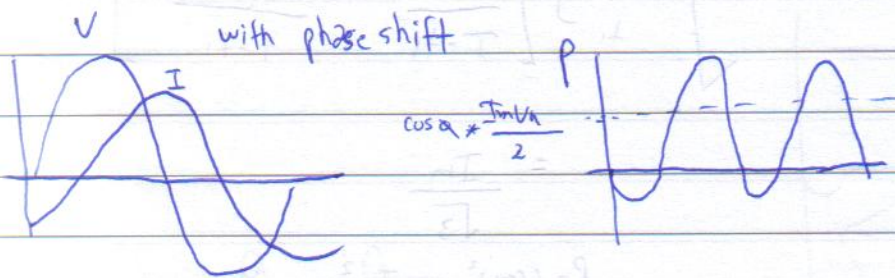 V with phase shift
I
P
cos a * ImVn
2